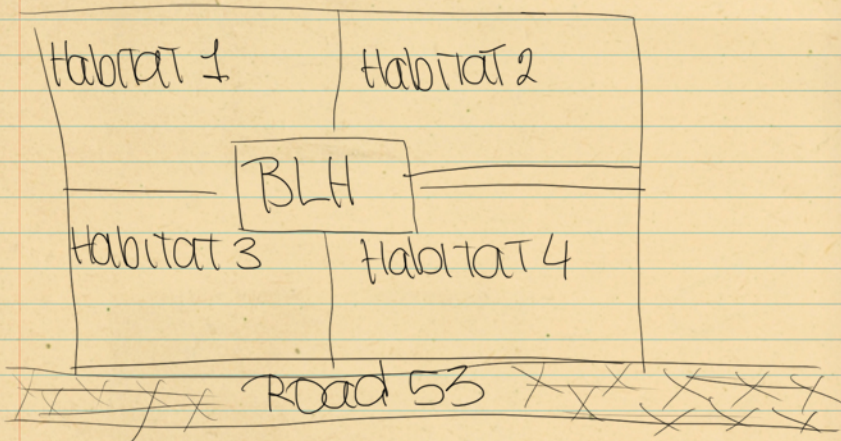 Habitat 1
Habitat 2
BLH
Habitat 3
Habitat 4
Road 53